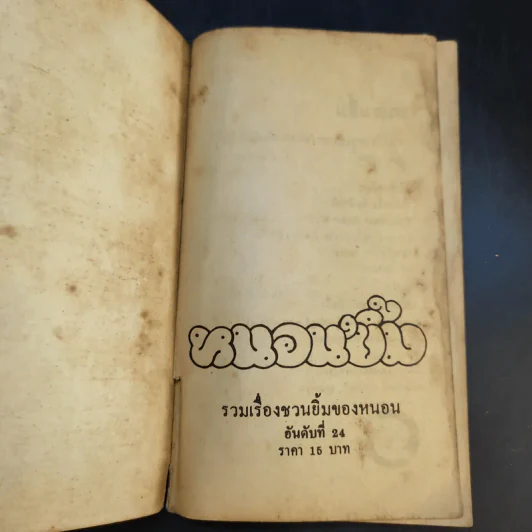 หนอนยิ้ม
รวมเรื่องชวนยิ้มของหนอน
อันดับที่ 24
ราคา 15 บาท